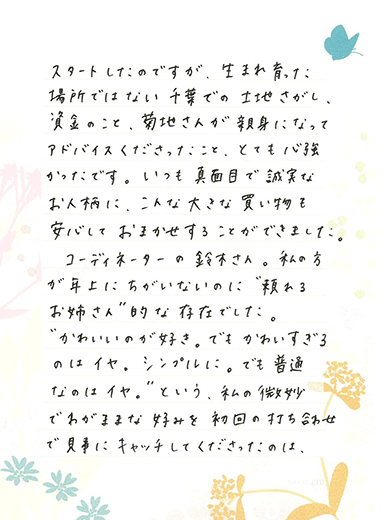 スタートしたのですが、生まれ育った
場所ではない千葉での土地さがし、
資金のこと、菊地さんが親身になって
アドバイスくださったこと、とても心強
かったです。いつも真面目で誠実な
お人柄に、こんな大きな買い物も
安心しておまかせすることができました。
コーディネーターの鈴木さん。私の方
が年上にちがいないのに"頼れる
お姉さん"的な存在でした。
"かわいいのが好き。でもかわいすぎる
のはイヤ。シンプルに。でも普通
なのはイヤ。"という、私の微妙
でわがままな好みを初回の打ち合わせ
で見事にキャッチしてくださったのは、